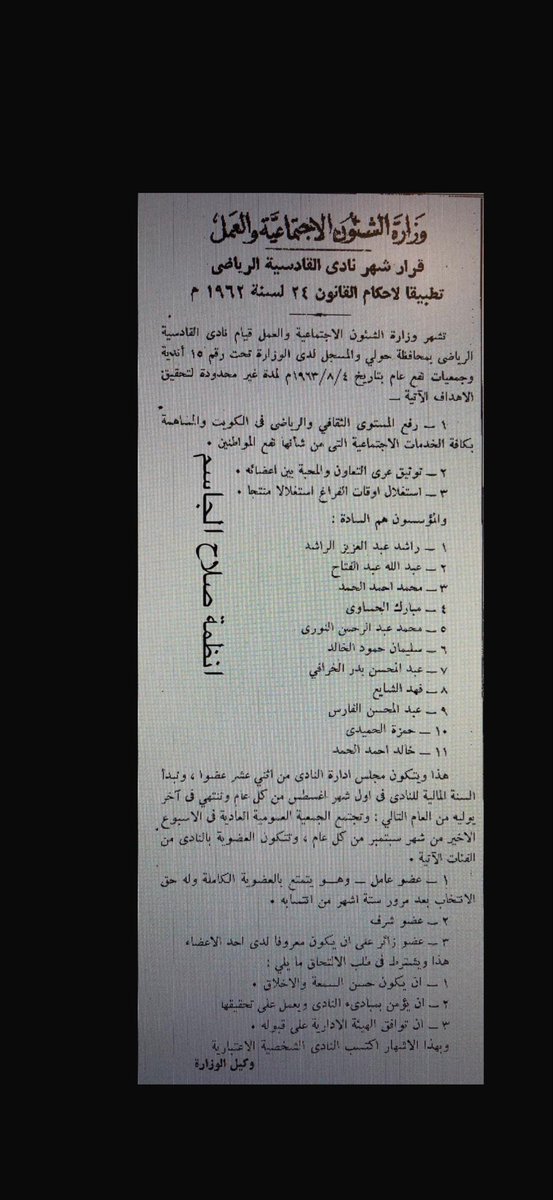 وزارة الشئون الاجتماعية والعمل
قرار شهر نادى القادسية الرياضى
تطبيقا لاحكام القانون ٢٤ لسنة ١٩٦٢ م
تشهر وزارة الشئون الاجتماعية والعمل قيام نادى القادسية
الرياضى بمحافظة حولي والمسجل لدى الوزارة تحت رقم ١٥ أندية
وجمعيات نفع عام بتاريخ ١٩٦٣/٨/٤م لمدة غير محدودة لتحقيق
الاهداف الآتية —
١ — رفع المستوى الثقافي والرياضى فى الكويت والمساهمة
بكافة الخدمات الاجتماعية التى من شأنها نفع المواطنين •
٢ — توثيق عرى التعاون والمحبة بين اعضائه •
٣ — استغلال اوقات الفراغ استغلالا منتجا •
والمؤسسون هم السادة :
١ — راشد عبد العزيز الراشد
٢ — عبد الله عبد الفتاح
٣ — محمد احمد الحمد
٤ — مبارك الحساوى
٥ — محمد عبد الرحمن النورى
٦ — سليمان حمود الخالد
٧ — عبد المحسن بدر الخرافي
٨ — فهد الشايع
٩ — عبد المحسن الفارس
١٠ — حمزة الحميدى
١١ — خالد احمد الحمد
هذا ويتكون مجلس ادارة النادى من اثني عشر عضوا ، وتبدأ
السنة المالية للنادى فى اول شهر اغسطس من كل عام وتنتهي فى آخر
يوليه من العام التالي : وتجتمع الجمعية العمومية العادية فى الاسبوع
الاخير من شهر سبتمبر من كل عام ، وتتكون العضوية بالنادى من
الفئات الآتية •
١ — عضو عامل — وهــو يتمتع بالعضوية الكاملة وله حق
الانتخاب بعد مرور ستة اشهر من انتسابه •
٢ — عضو شرف
٣ — عضو زائر على ان يكون معروفا لدى احد الاعضاء
هذا ويشترط فى طلب الالتحاق ما يلي :
١ — ان يكون حسن السمعة والاخلاق •
٢ — ان يؤمن بمبادىء النادى ويعمل على تحقيقها
٣ — ان توافق الهيئة الادارية على قبوله •
وبهذا الاشهار اكتسب النادى الشخصية الاعتبارية
وكيل الوزارة
انظمة صلاح الجاسم